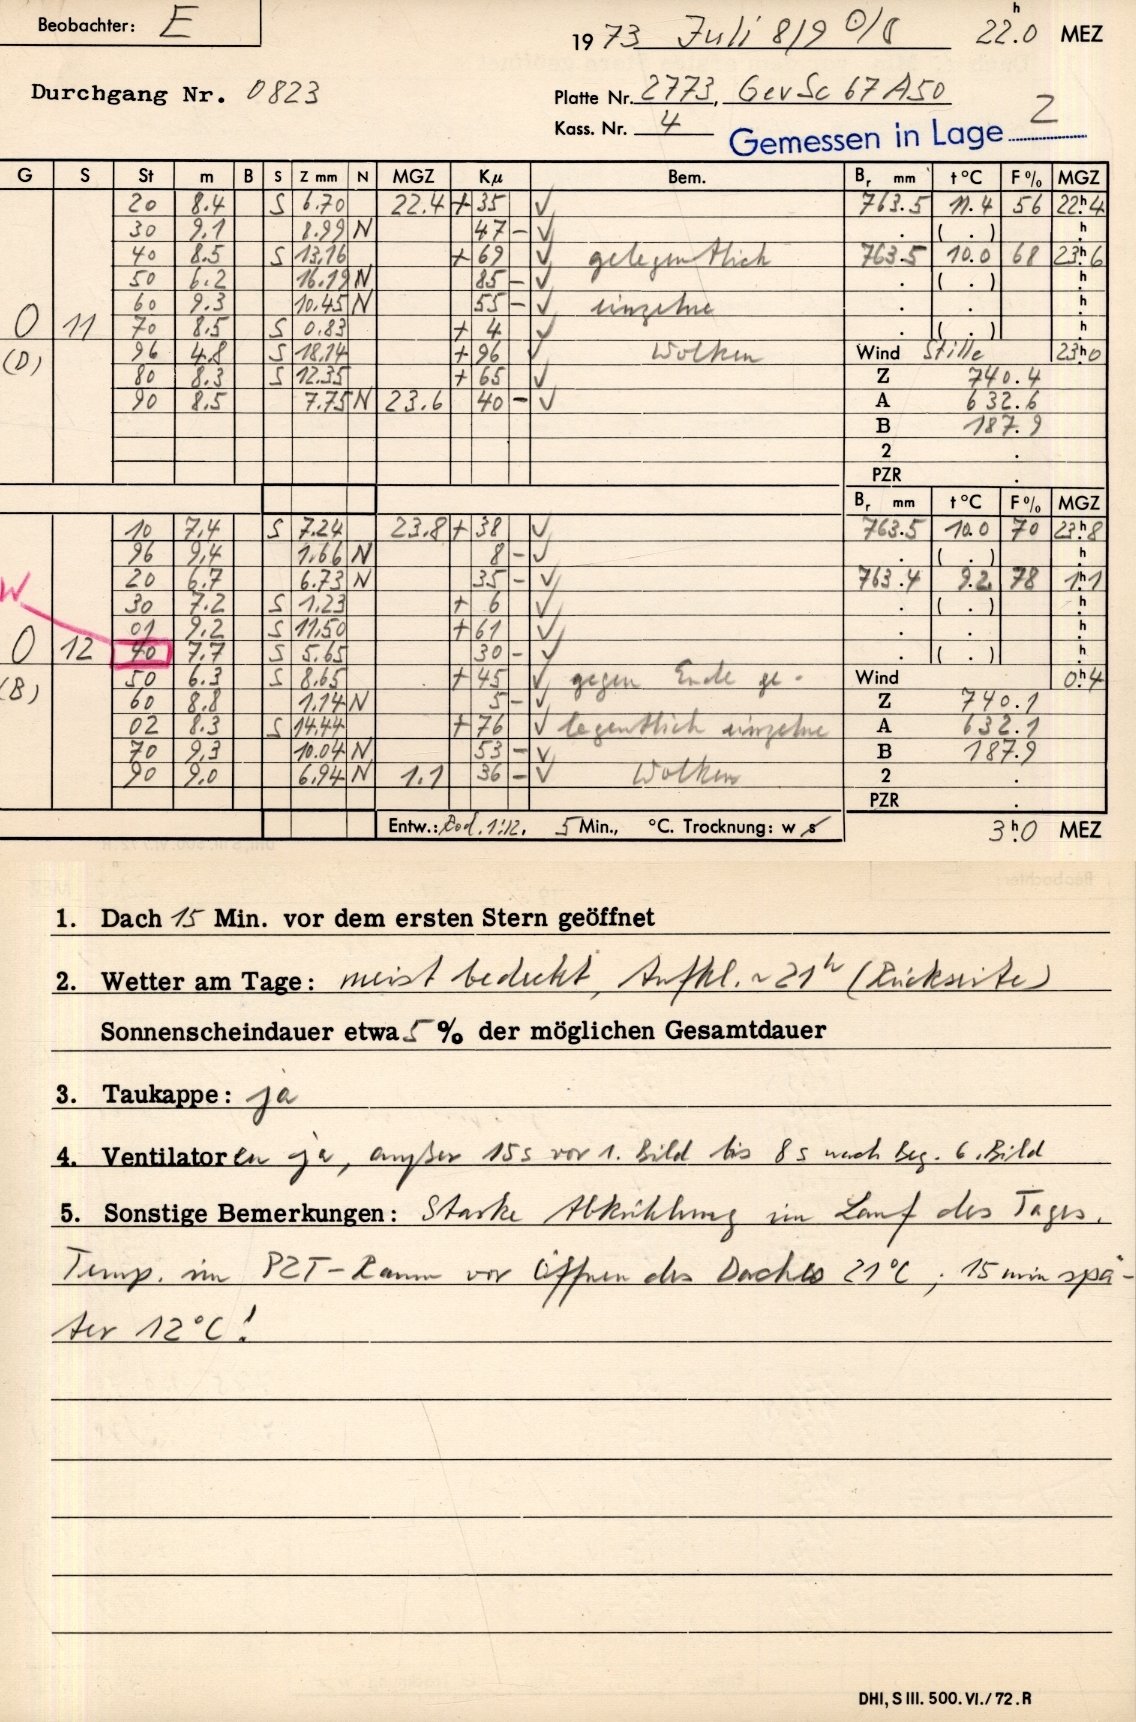 Beobachter: E
1973 Juli 8/9 ⊙/☾ 22.0 h MEZ
Durchgang Nr. 0823
Platte Nr. 2773, GevSc 67 A50
Kass. Nr. 4
Gemessen in Lage 2
G S St m B S Z mm N MGZ Kμ Bem. Br mm t °C F % MGZ
20 8.4 S 6.70 22.4 + 35 ✓ 763.5 11.4 56 22h.4
30 9.1 8.99 N 47 - ✓ . ( . ) h.
40 8.5 S 13,16 + 69 ✓ gelegentlich 763.5 10.0 68 23h.6
50 6.2 16.19 N 85 - ✓ . ( . ) h.
60 9.3 10.45 N 55 - ✓ einzelne . . h.
O 11 70 8.5 S 0.83 + 4 ✓ . ( . ) h.
(D) 96 4.8 S 18,14 + 96 ✓ Wolken Wind Stille 23h.0
80 8.3 S 12.35 + 65 ✓ Z 740.4
90 8.5 7.75 N 23.6 40 - ✓ A 632.6
B 187.9
2 .
PZR .
Br mm t °C F % MGZ
10 7.4 S 7.24 23.8 + 38 ✓ 763.5 10.0 70 23h.8
96 9,4 1.66 N 8 - ✓ . ( . ) h.
20 6.7 6.73 N 35 - ✓ 763.4 9.2 78 1h.1
W 30 7.2 S 1,23 + 6 ✓ . ( . ) h.
01 9.2 S 11,50 + 61 ✓ . . h.
O 12 40 7.7 S 5.65 30 - ✓ . ( . ) h.
(B) 50 6.3 S 8.65 + 45 ✓ gegen Ende ge- Wind 0h.4
60 8.8 1.14 N 5 - ✓ Z 740.1
02 8.3 S 14.44 + 76 ✓ legentlich einzelne A 632.1
70 9,3 10.04 N 53 - ✓ B 187.9
90 9.0 6.94 N 1.1 36 - ✓ Wolken 2 .
PZR .
Entw.: Rod. 1:12, 5 Min., °C. Trocknung: w s 3h.0 MEZ
1. Dach 15 Min. vor dem ersten Stern geöffnet
2. Wetter am Tage: meist bedeckt, Aufkl. ~ 21h (Rückseite)
Sonnenscheindauer etwa 5 % der möglichen Gesamtdauer
3. Taukappe: ja
4. Ventilatoren ja, außer 15s vor 1. Bild bis 8s nach Beg. 6. Bild
5. Sonstige Bemerkungen: Starke Abkühlung im Lauf des Tages.
Temp. im PZT-Raum vor Öffnen des Daches 21°C, 15 min spä-
ter 12°C!
DHI, S III. 500. VI./72. R